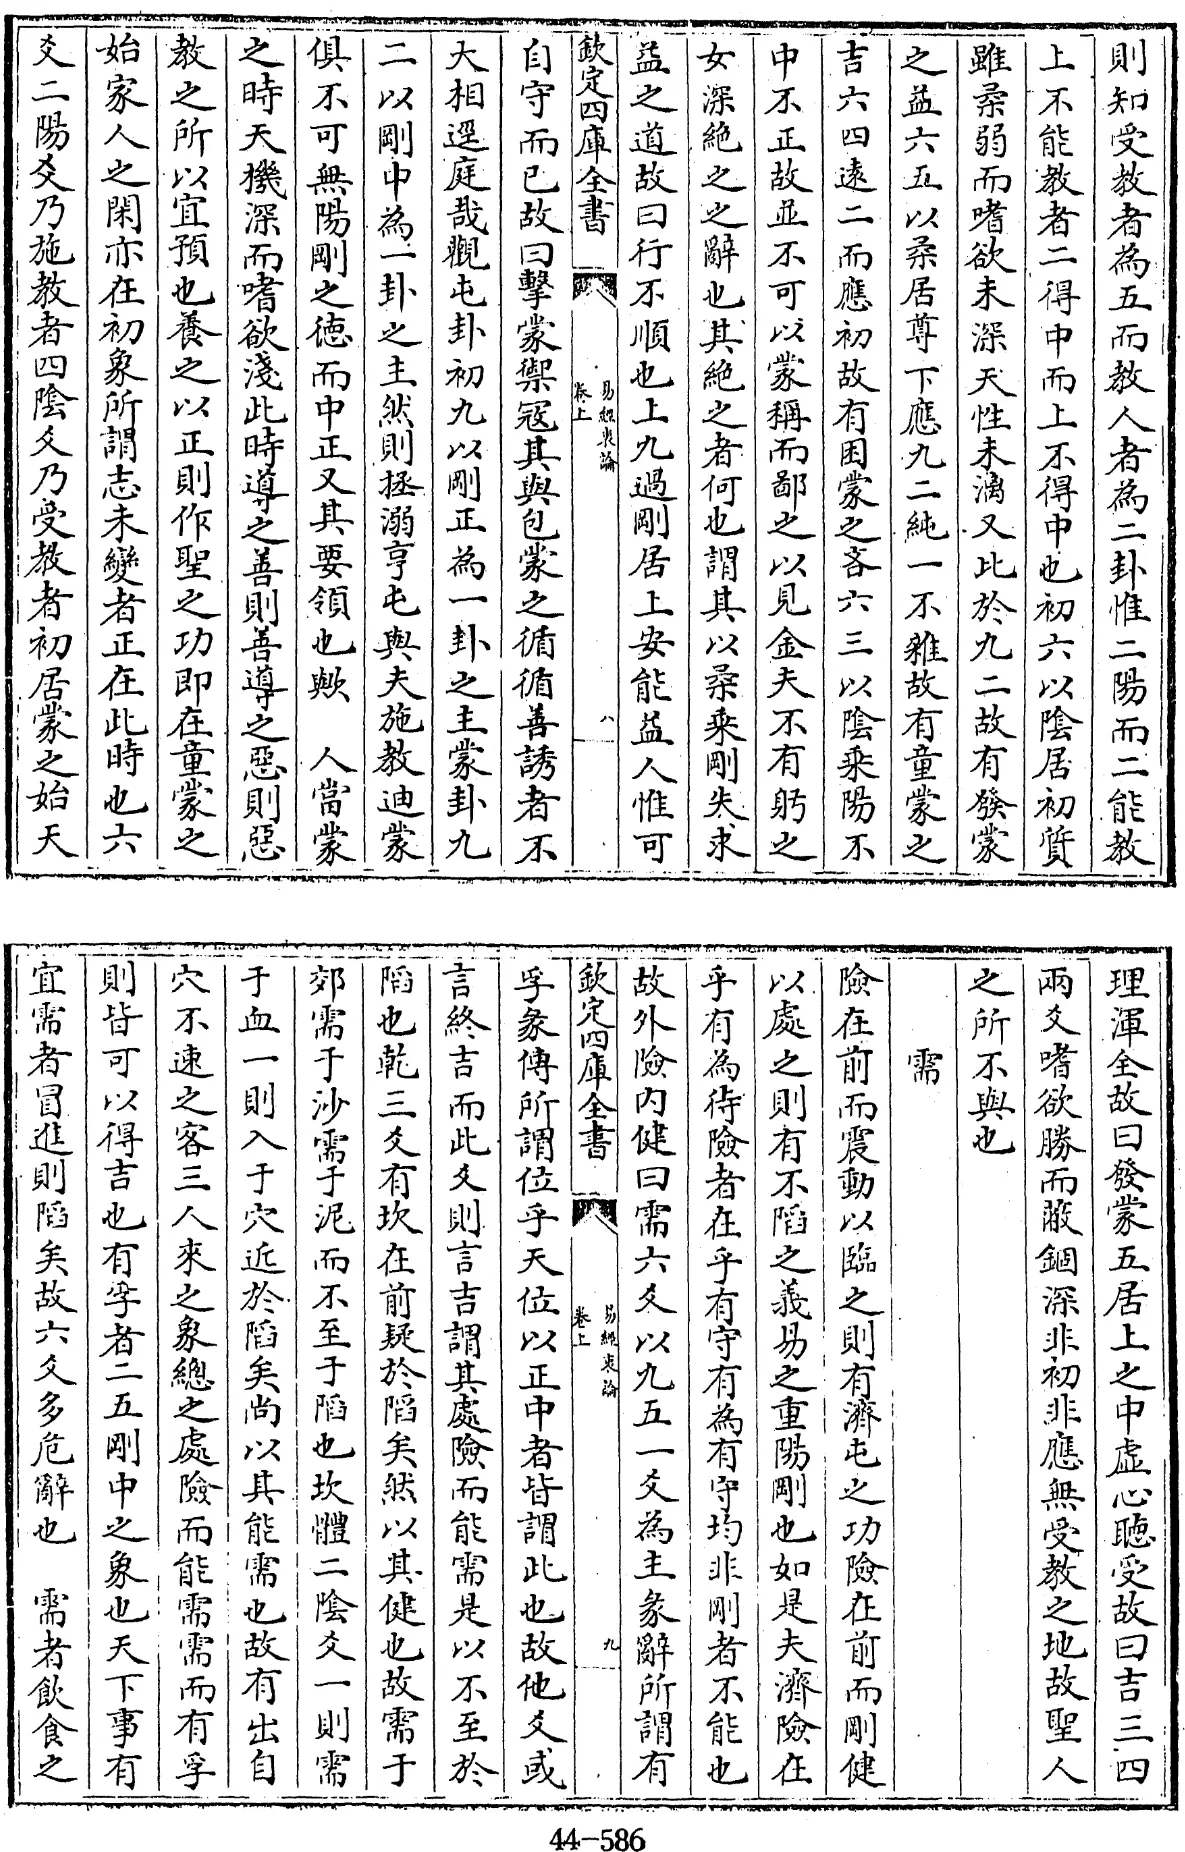 則知受教者為五而教人者為二卦惟二陽而二能教
上不能教者二得中而上不得中也初六以陰居初質
雖柔弱而嗜欲未深天性未漓又比於九二故有發蒙
之益六五以柔居尊下應九二純一不雜故有童蒙之
吉六四逺二而應初故有困蒙之吝六三以陰乗陽不
中不正故並不可以蒙稱而鄙之以見金夫不有躬之
女深絶之之辭也其絶之者何也謂其以柔乗剛失求
益之道故曰行不順也上九過剛居上安能益人惟可
欽定四庫全書
易經衷論
卷上
八
自守而已故曰擊蒙禦冦其與包蒙之循循善誘者不
大相逕庭哉觀屯卦初九以剛正為一卦之主蒙卦九
二以剛中為一卦之主然則拯溺亨屯與夫施教迪蒙
俱不可無陽剛之徳而中正又其要領也歟　人當蒙
之時天機深而嗜欲淺此時導之善則善導之惡則惡
教之所以宜預也養之以正則作聖之功即在童蒙之
始家人之閑亦在初象所謂志未變者正在此時也六
爻二陽爻乃施教者四陰爻乃受教者初居蒙之始天
理渾全故曰發蒙五居上之中虛心聴受故曰吉三四
兩爻嗜欲勝而蔽錮深非初非應無受教之地故聖人
之所不與也
需
險在前而震動以臨之則有濟屯之功險在前而剛健
以處之則有不陷之義易之重陽剛也如是夫濟險在
乎有為待險者在乎有守有為有守均非剛者不能也
故外險内健曰需六爻以九五一爻為主彖辭所謂有
欽定四庫全書
易經衷論
卷上
九
孚彖傳所謂位乎天位以正中者皆謂此也故他爻或
言終吉而此爻則言吉謂其處險而能需是以不至於
陷也乾三爻有坎在前疑於陷矣然以其健也故需于
郊需于沙需于泥而不至于陷也坎體二陰爻一則需
于血一則入于穴近於陷矣尚以其能需也故有出自
穴不速之客三人來之象總之處險而能需需而有孚
則皆可以得吉也有孚者二五剛中之象也天下事有
宜需者冒進則陷矣故六爻多危辭也　需者飲食之
44-586